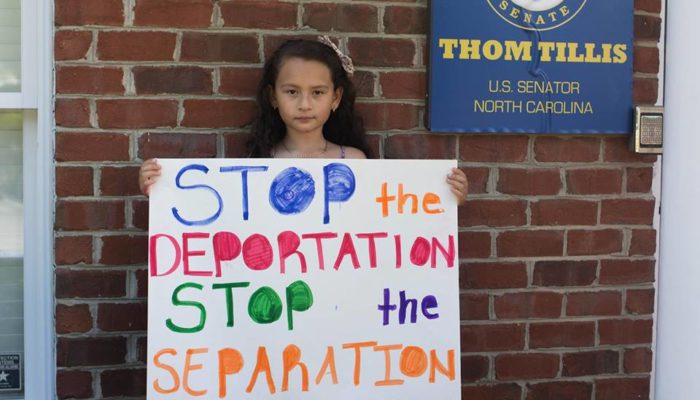 SENATE
THOM TILLIS
U.S. SENATOR
NORTH CAROLINA
STOP the
DEPORTATION
STOP the
SEPARATION